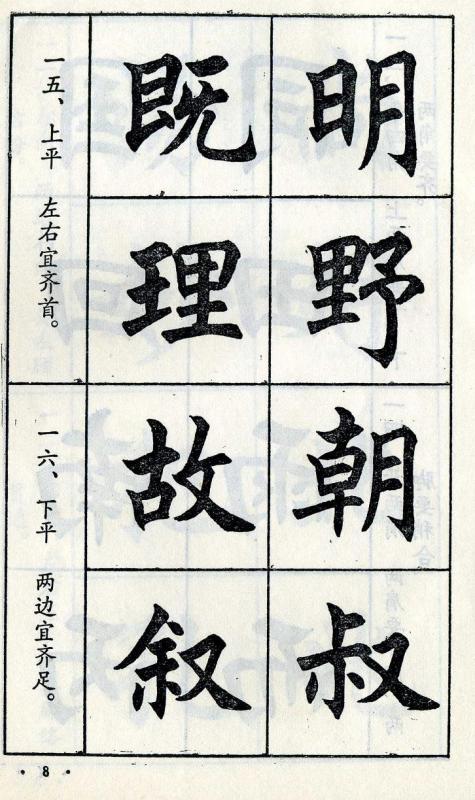 明野朝叔
既理故叙
一五、上平 左右宜齐首。
一六、下平 两边宜齐足。
·8·